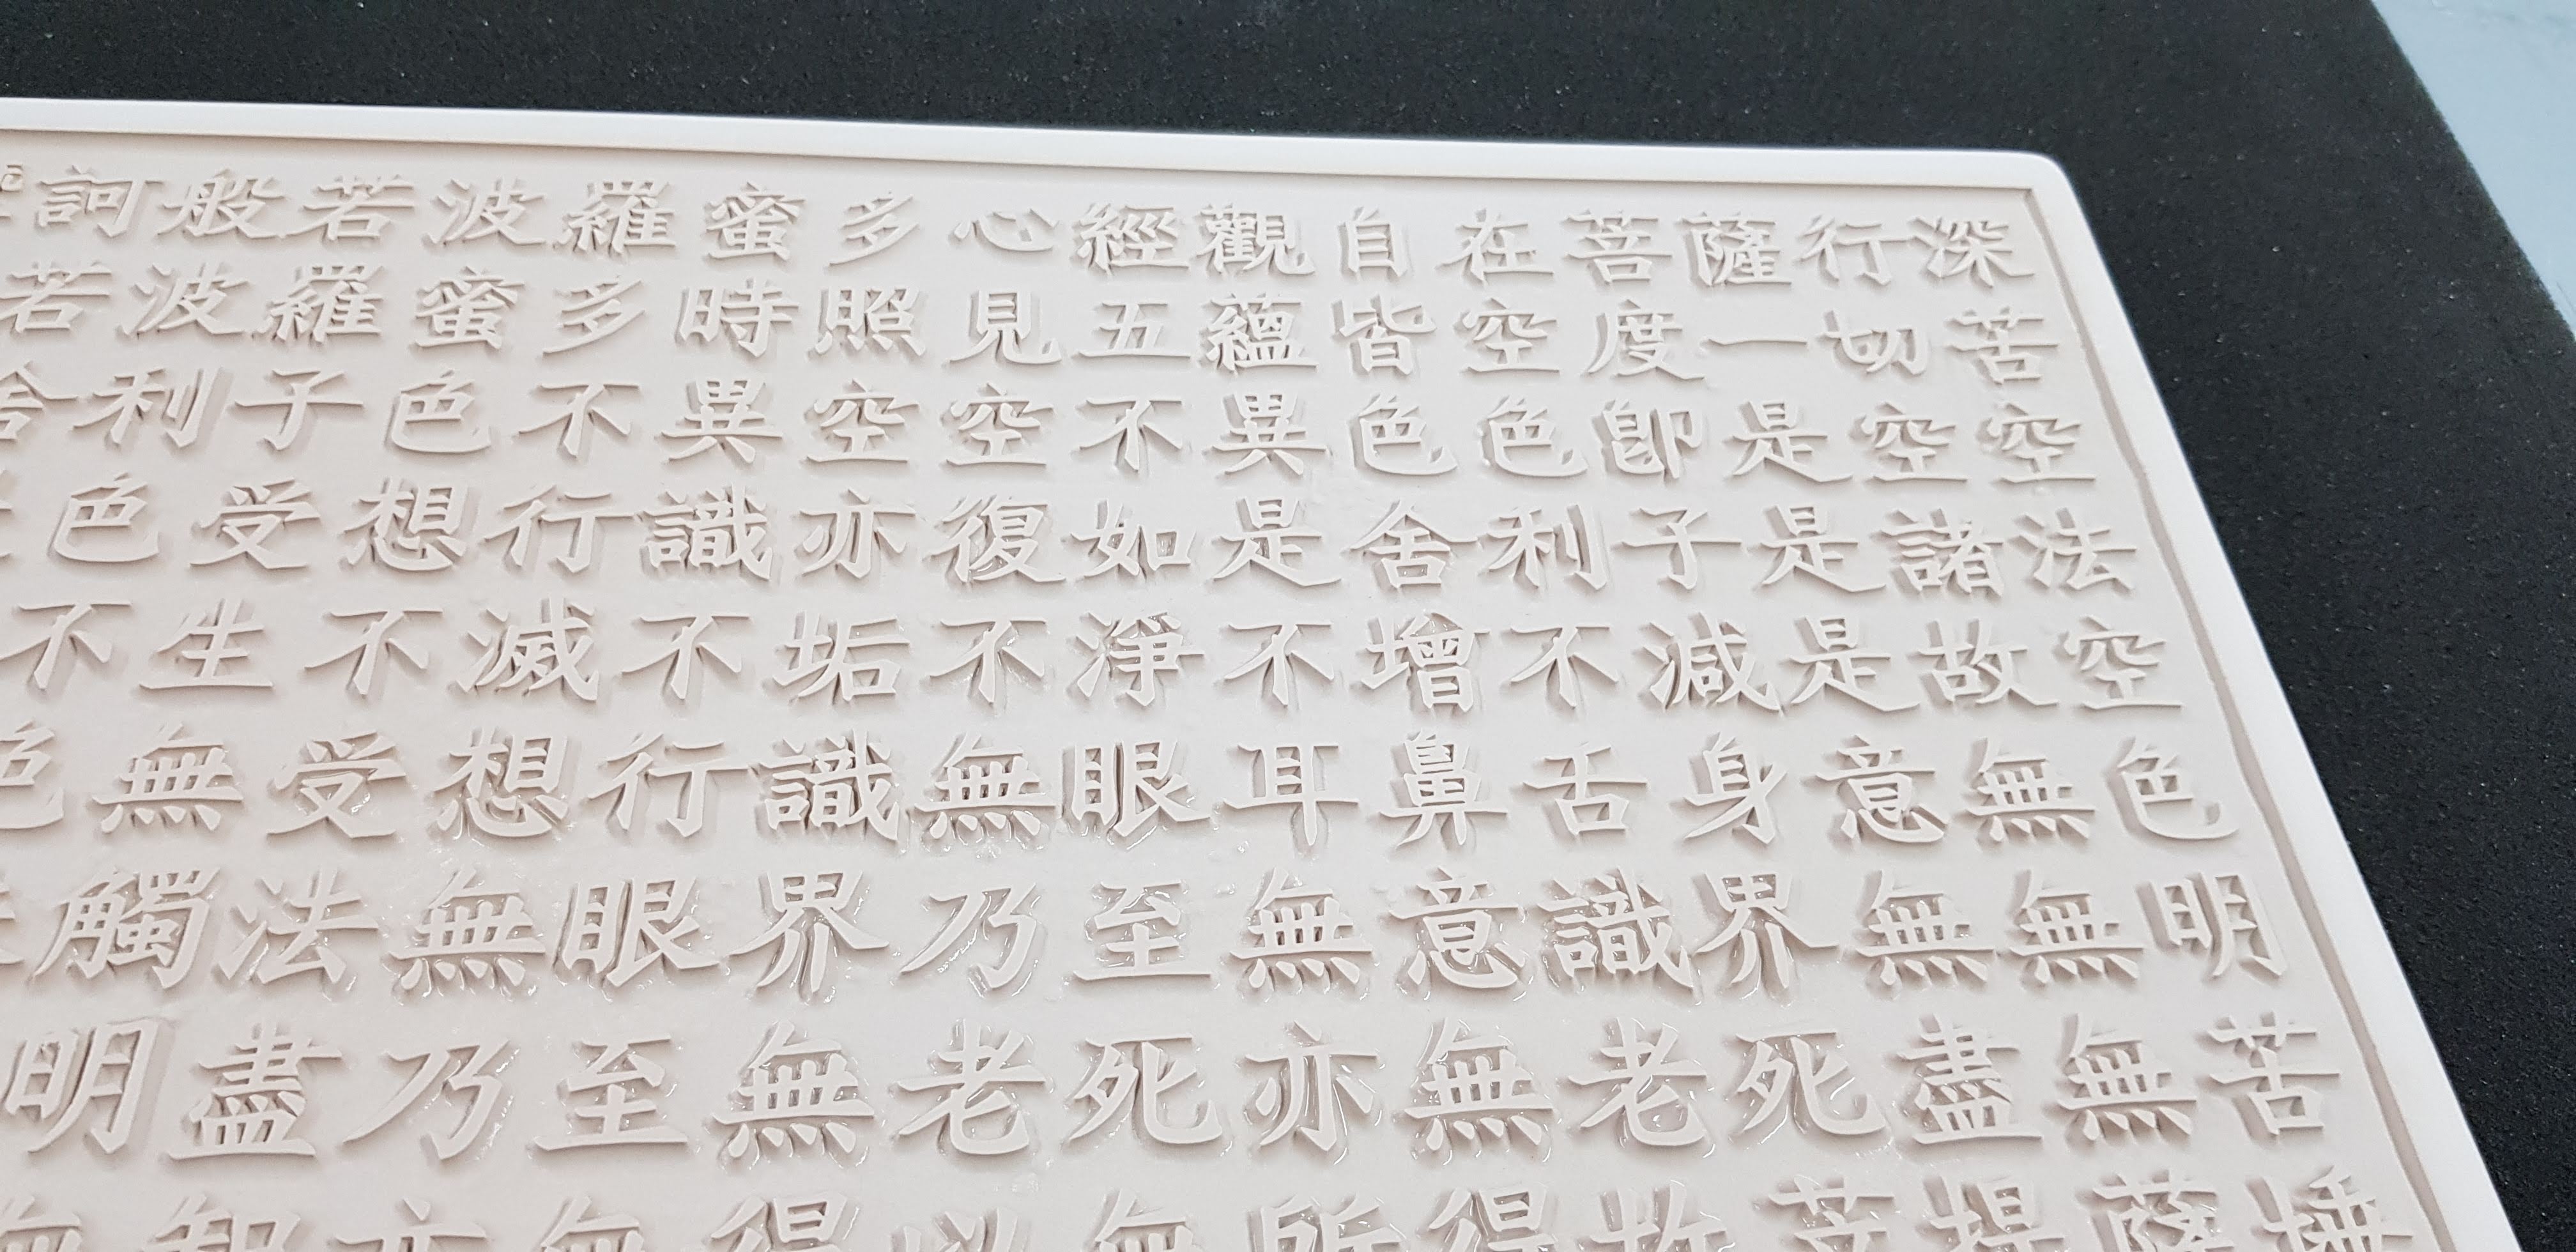 訶般若波羅蜜多心經觀自在菩薩行深
若波羅蜜多時照見五蘊皆空度一切苦
舍利子色不異空空不異色色卽是空空
色受想行識亦復如是舍利子是諸法
不生不滅不垢不淨不增不減是故空
色無受想行識無眼耳鼻舌身意無色
觸法無眼界乃至無意識界無無明
明盡乃至無老死亦無老死盡無苦
無智亦無得以無所得故菩提薩埵